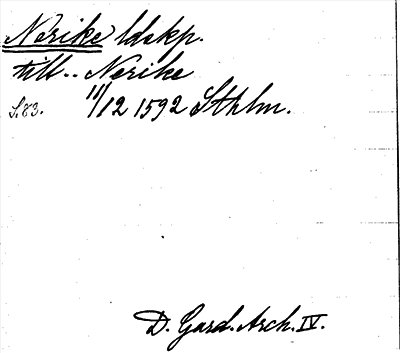 Nerike ldskp.
till.. Nerike
S.83. 11/12 1592 Sthlm.
D. Gard. Arch. IV.